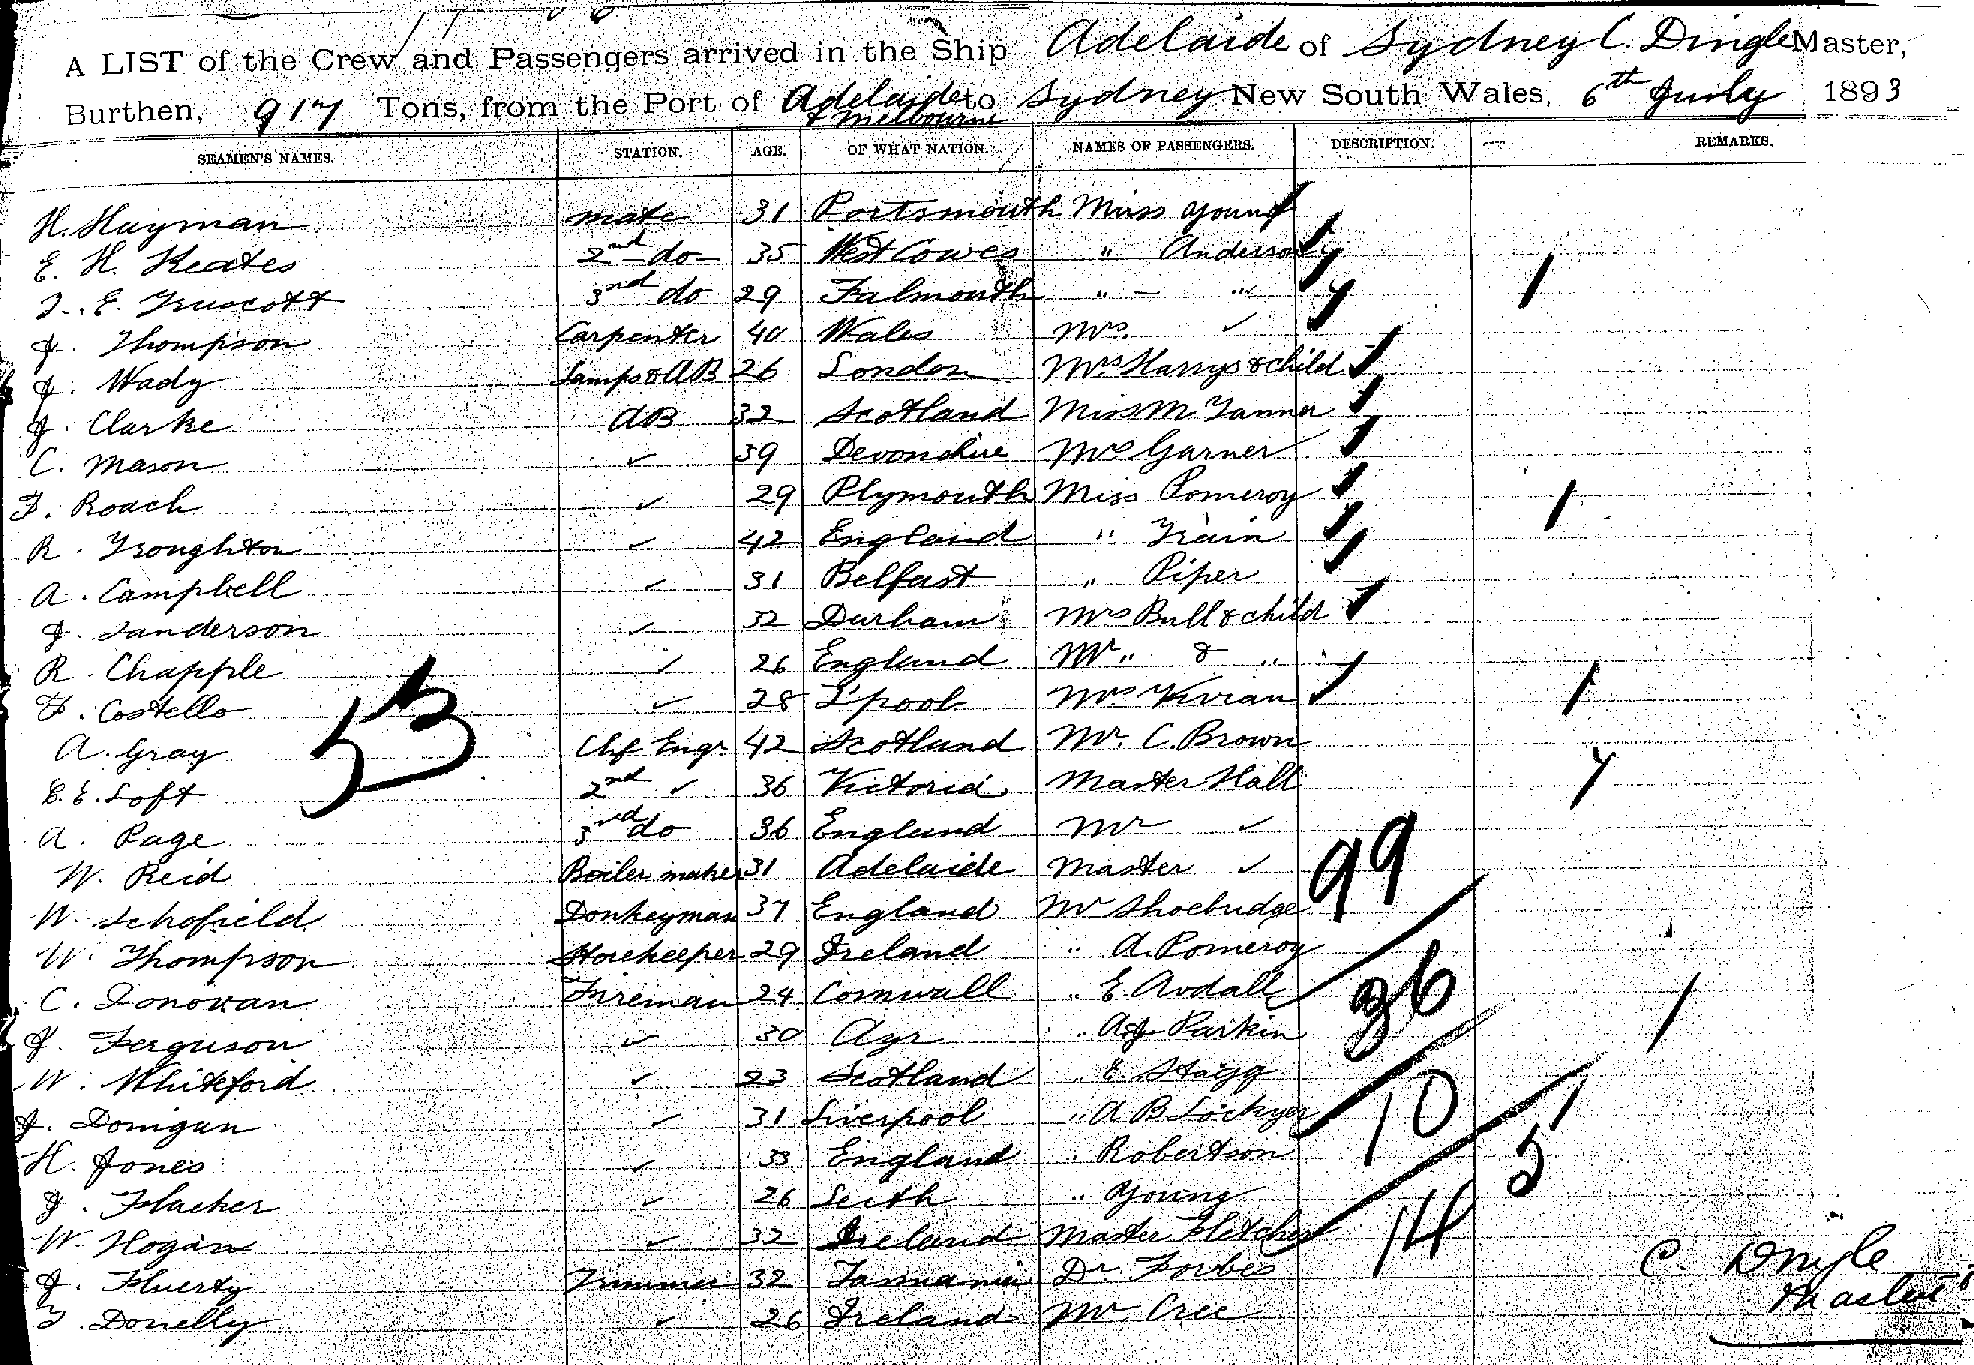 A LIST of the Crew and Passengers arrived in the Ship Adelaide of Sydney C. Dingle Master,
Burthen, 917 Tons, from the Port of Adelaide & Melbourne to Sydney New South Wales, 6th July 1893
SEAMEN'S NAMES. STATION. AGE. OF WHAT NATION. NAMES OF PASSENGERS. DESCRIPTION. REMARKS.
H. Hayman mate 31 Portsmouth Miss Young
E. H. Keates 2nd do 35 West Cowes " Anderson
J. E. Truscott 3rd do 29 Falmouth " - "
J. Thompson Carpenter 40 Wales Mrs. ✓
J. Wady Lamps & AB 26 London Mrs Harrys & child
J. Clarke AB 32 Scotland Miss M Tanner
C. Mason ✓ 39 Devonshire Mrs Garner
F. Roach ✓ 29 Plymouth Miss Pomeroy
R. Troughton ✓ 42 England " Train
A. Campbell ✓ 31 Belfast " Piper
J. Sanderson ✓ 32 Durham Mrs Bull & child
R. Chapple ✓ 26 England Mr " & "
F. Costello ✓ 28 L'pool Mrs Vivian
A. Gray Chf Engr 42 Scotland Mr. C. Brown
E. E. Loft 2nd ✓ 36 Victoria Master Hall
A. Page 3rd do 36 England Mr ✓
W. Reid Boiler maker 31 Adelaide Master ✓
W. Schofield Donkeyman 37 England Mr Shoebridge
W. Thompson Storekeeper 29 Ireland " A. Pomeroy
C. Donovan Fireman 24 Cornwall " E. Avdall
J. Ferguson ✓ 30 Ayr " Parkin
W. Whiteford ✓ 23 Scotland " E. Stagg
J. Donigan ✓ 31 Liverpool " A B Lockyer
H. Jones ✓ 33 England " Robertson
J. Flacker ✓ 26 Leith " Young
W. Hogan ✓ 32 Ireland Master Fletcher
J. Fluerty Trimmer 32 Tasmania Dr Forbes
T. Donelly ✓ 26 Ireland Mr Cree
53
99
36
10
5
14
C. Dingle
Master